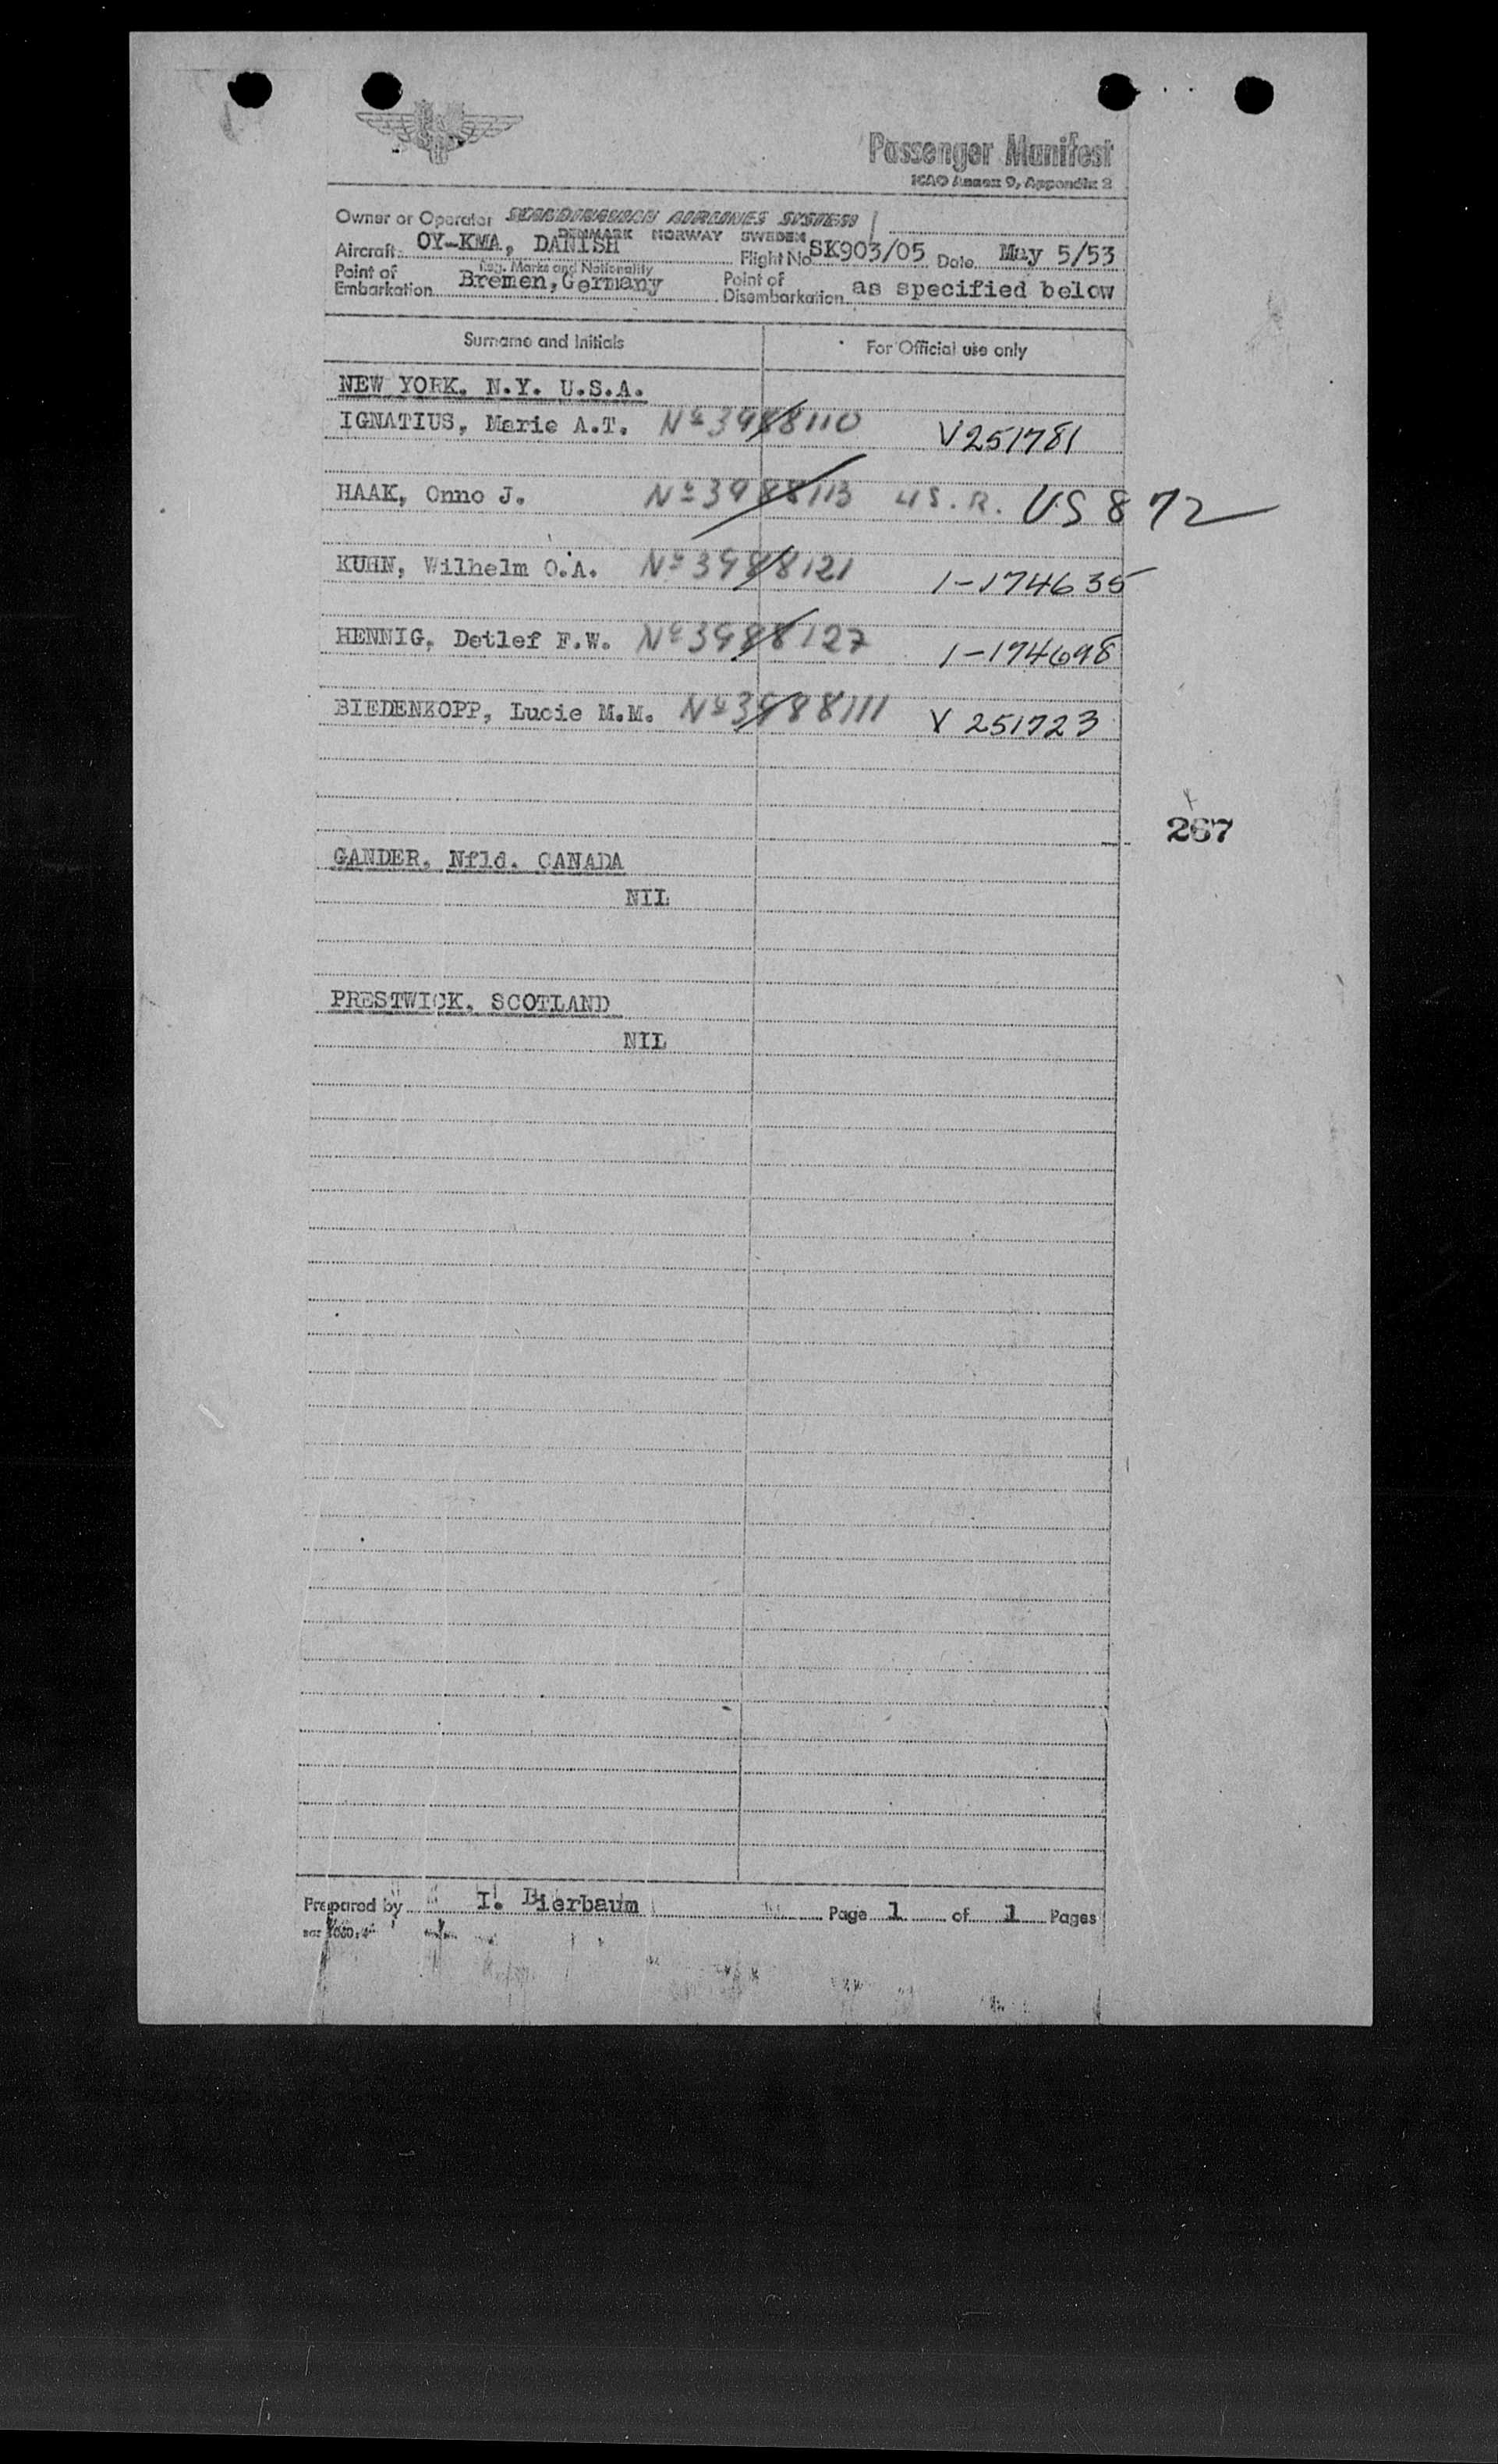 Passenger Manifest
ICAO Annex 9, Appendix 2
Owner or Operator SCANDINAVIAN AIRLINES SYSTEM
DENMARK NORWAY SWEDEN
Aircraft OY-KMA, DANISH Flight No. SK903/05 Date May 5/53
Reg. Marks and Nationality
Point of Embarkation Bremen, Germany Point of Disembarkation as specified below
Surname and Initials For Official use only
NEW YORK, N.Y. U.S.A.
IGNATIUS, Marie A.T. No 3988110 V251781
HAAK, Onno J. No 3988113 U.S.R. US 872
KUHN, Wilhelm O.A. No 3988121 1-174635
HENNIG, Detlef F.W. No 3988127 1-174698
BIEDENKOPP, Lucie M.M. No 3988111 V 251723
267
GANDER, Nfld. CANADA
NIL
PRESTWICK, SCOTLAND
NIL
Prepared by I. Bierbaum Page 1 of 1 Pages